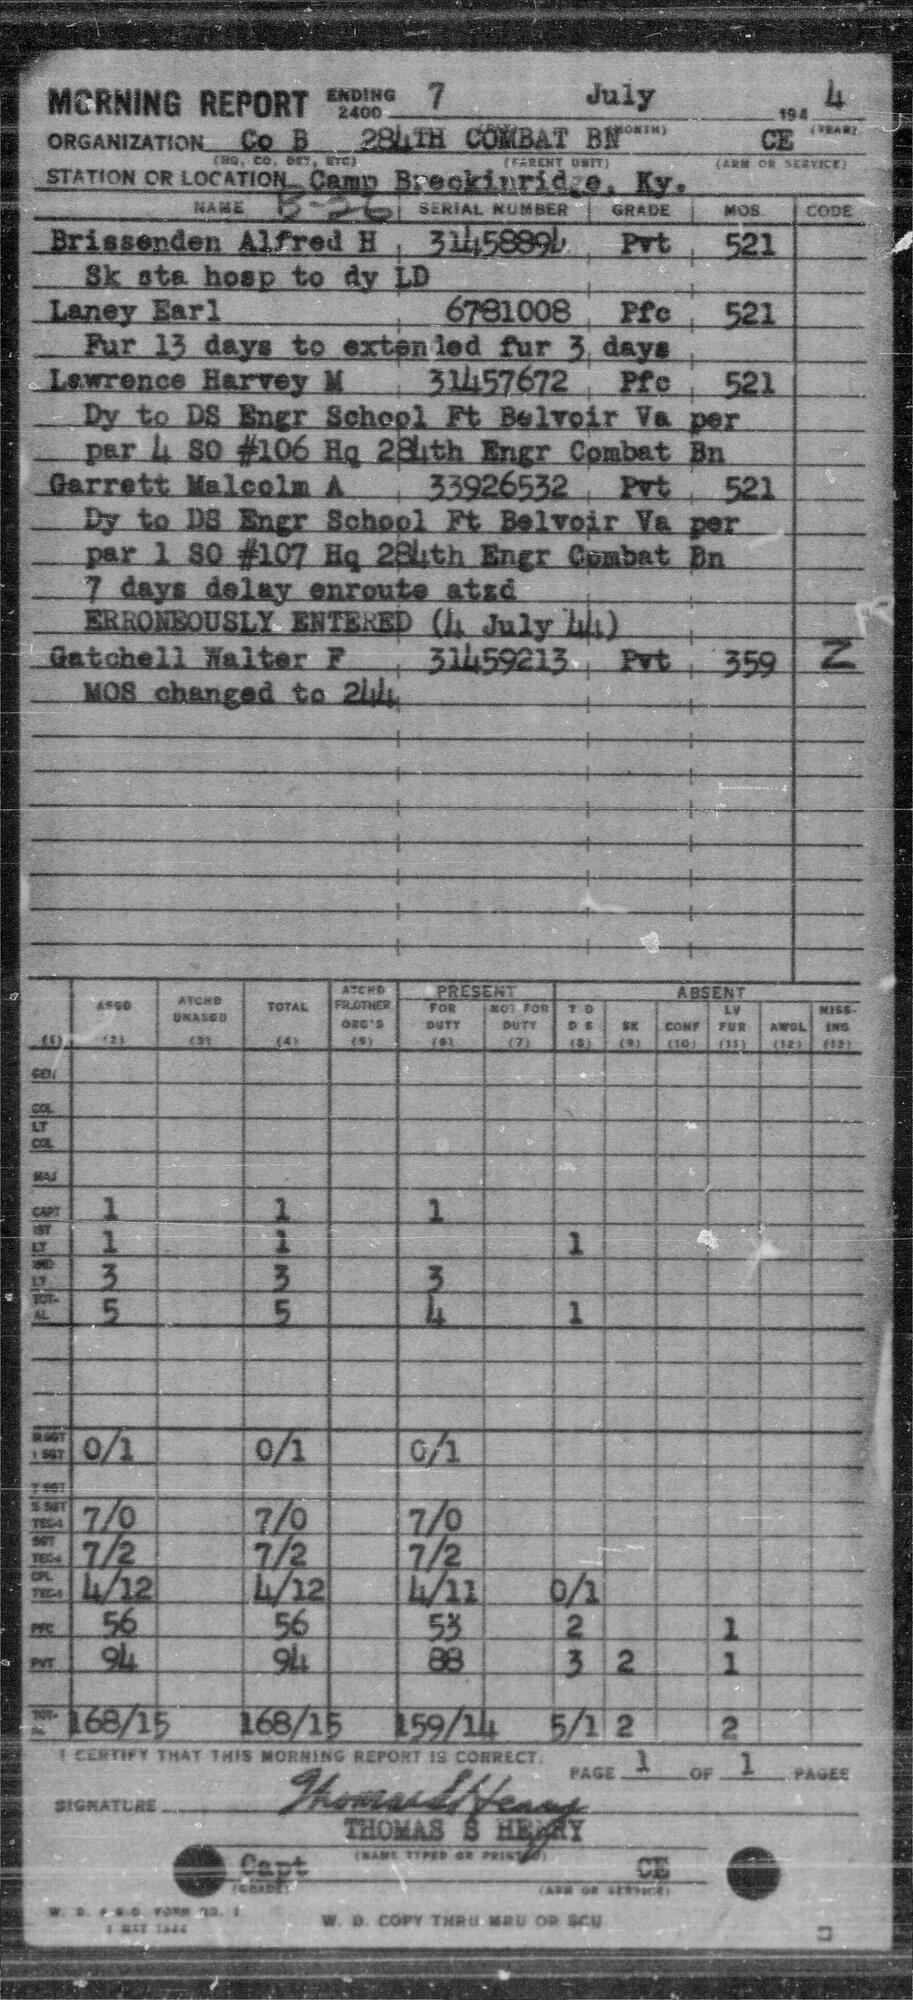 MORNING REPORT ENDING 2400 7 July 194 4
(MONTH) (YEAR)
ORGANIZATION Co B 284TH COMBAT BN CE
(HQ, CO, DET, ETC) (PARENT UNIT) (ARM OR SERVICE)
STATION OR LOCATION Camp Breckinridge, Ky.
NAME B-26 SERIAL NUMBER GRADE MOS CODE
Brissenden Alfred H 31458894 Pvt 521
Sk sta hosp to dy LD
Laney Earl 6781008 Pfc 521
Fur 13 days to extended fur 3 days
Lawrence Harvey M 31457672 Pfc 521
Dy to DS Engr School Ft Belvoir Va per
par 4 SO #106 Hq 284th Engr Combat Bn
Garrett Malcolm A 33926532 Pvt 521
Dy to DS Engr School Ft Belvoir Va per
par 1 SO #107 Hq 284th Engr Combat Bn
7 days delay enroute atzd
ERRONEOUSLY ENTERED (4 July 44)
Gatchell Walter F 31459213 Pvt 359 Z
MOS changed to 244
ASGD ATCHD UNASGD TOTAL ATCHD FR.OTHER ORG'S PRESENT ABSENT
FOR DUTY NOT FOR DUTY T D D S SK CONF LV FUR AWOL MISS-ING
(1) (2) (3) (4) (5) (6) (7) (8) (9) (10) (11) (12) (13)
GEN
COL
LT COL
MAJ
CAPT 1 1 1
1ST LT 1 1 1
2ND LT 3 3 3
TOT-AL 5 5 4 1
M SGT 1 SGT 0/1 0/1 0/1
T SGT
S SGT TEC-3 7/0 7/0 7/0
SGT TEC-4 7/2 7/2 7/2
CPL TEC-5 4/12 4/12 4/11 0/1
PFC 56 56 53 2 1
PVT 94 94 88 3 2 1
TOT-AL 168/15 168/15 159/14 5/1 2 2
I CERTIFY THAT THIS MORNING REPORT IS CORRECT.
PAGE 1 OF 1 PAGES
SIGNATURE Thomas S Henry
THOMAS S HENRY
(NAME TYPED OR PRINTED)
Capt CE
(GRADE) (ARM OR SERVICE)
W. D. A.G.O. FORM NO. 1
1 MAY 1944
W. D. COPY THRU MRU OR SCU